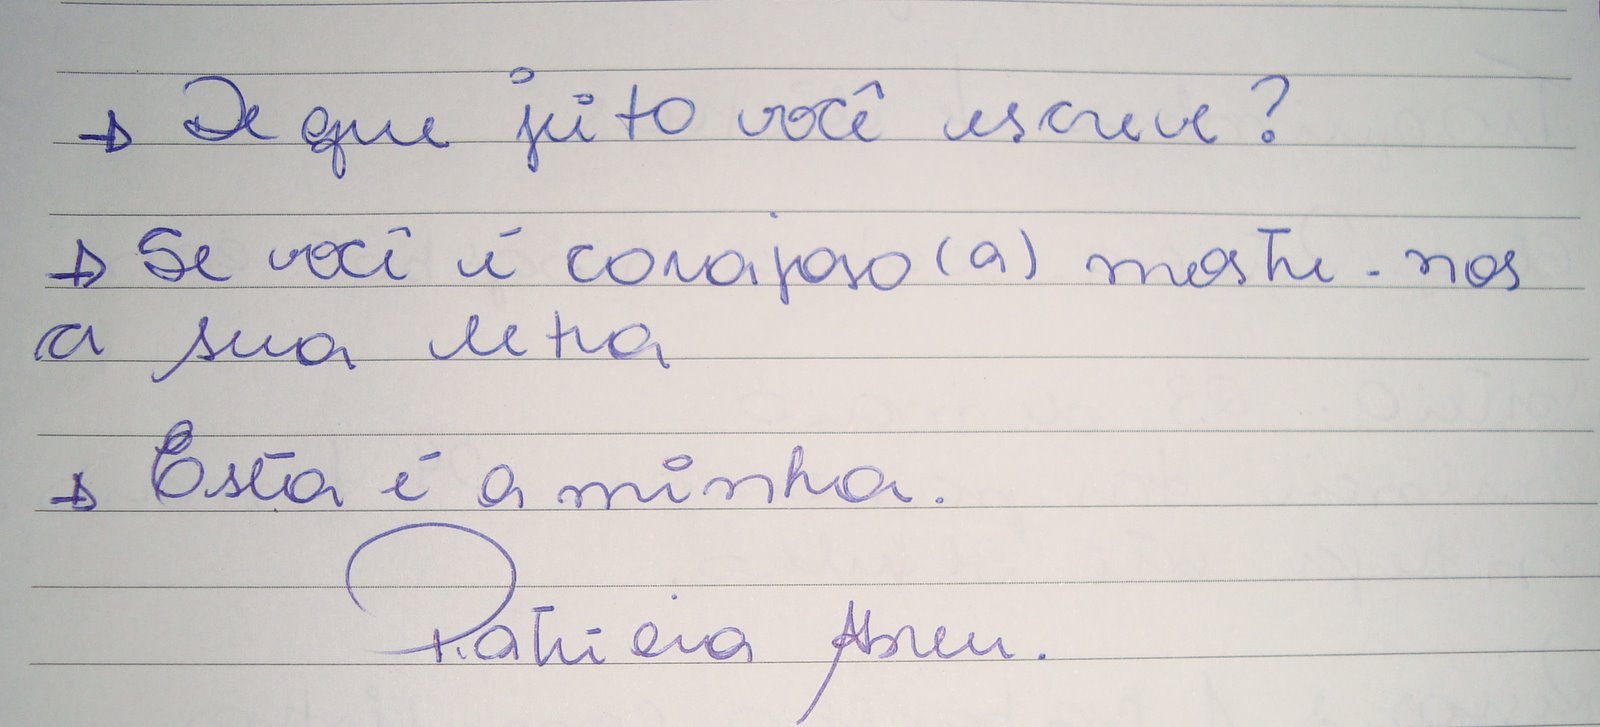 → De que jeito você escreve?
→ Se você é corajoso(a) mostre-nos
a sua letra
→ Esta é a minha.
Patricia Abreu.